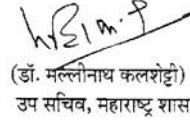 (डॉ. मल्लीनाथ कलशेट्टी)
उप सचिव, महाराष्ट्र शास